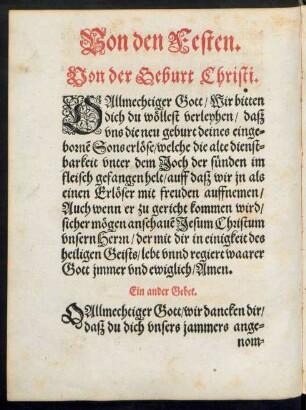 Von den Festen.
Von der Geburt Christi.
O Allmechtiger Gott/ Wir bitten
dich du wöllest verleyhen/ daß
vns die neu geburt deines einge-
bornē Sons erlöse/ welche die alte dienst-
barkeit vnter dem Joch der sünden im
fleisch gefangen hele/ auff daß wir jn als
einen Erlöser mit freuden auffnemen/
Auch wenn er zu gericht kommen wird/
sicher mögen anschauē Jesum Christum
vnsern Herrn/ der mit dir in einigkeit des
heiligen Geists/ lebt vnnd regiert waarer
Gott jmmer vnd ewiglich/ Amen.
Ein ander Gebet.
O Allmechtiger Gott/ wir dancken dir/
daß du dich vnsers jammers ange-
nom-